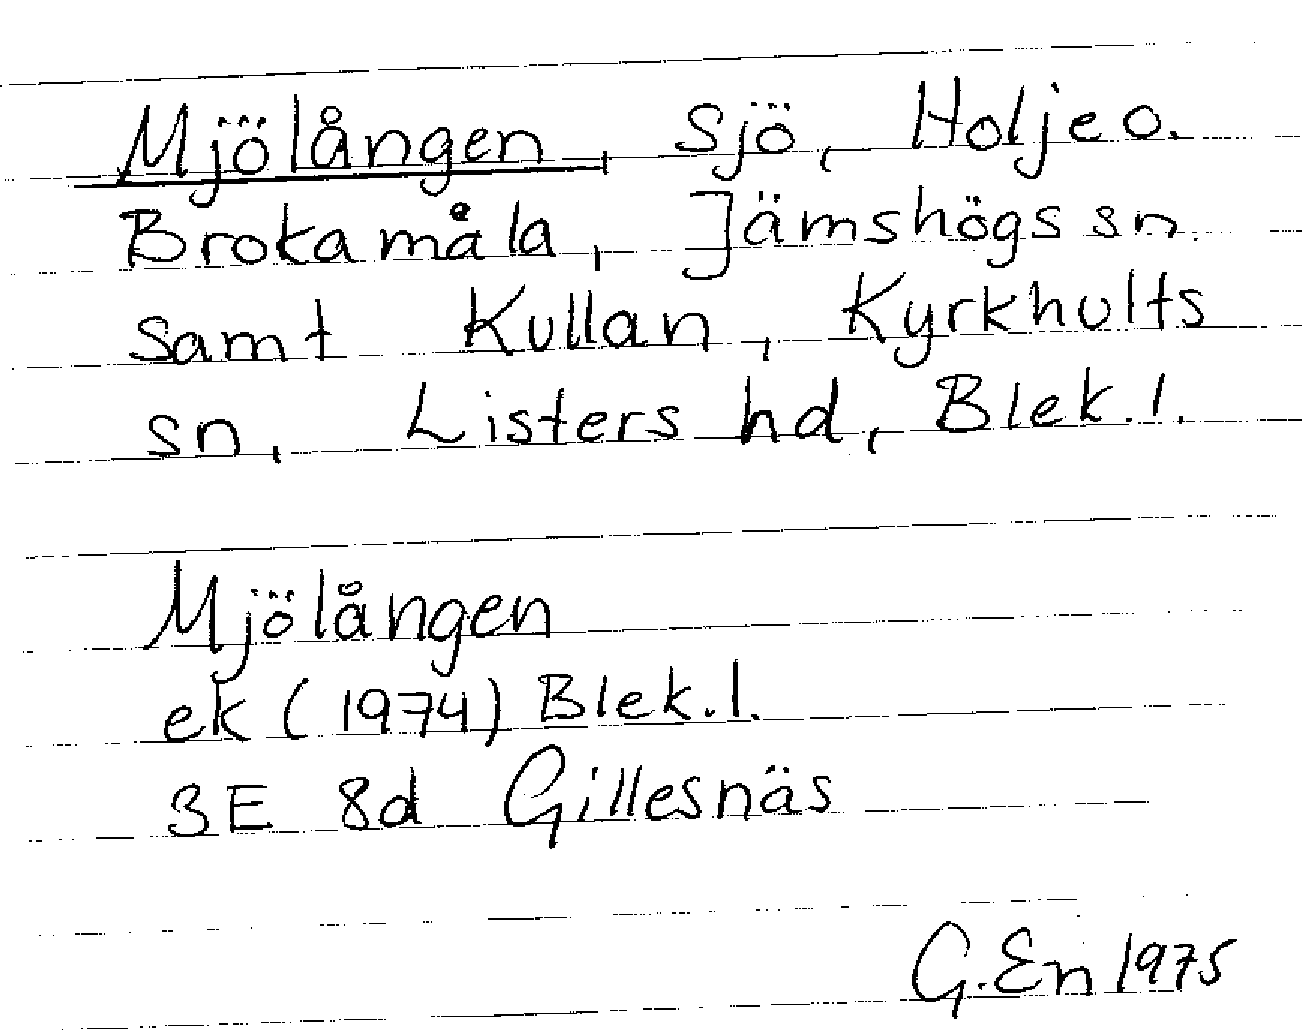 Mjölången, sjö, Holje o.
Brokamåla, Jämshögs sn.
samt Kullan, Kyrkhults
sn, Listers hd, Blek.l.
Mjölången
ek (1974) Blek.l.
3E 8d Gillesnäs
G.En 1975